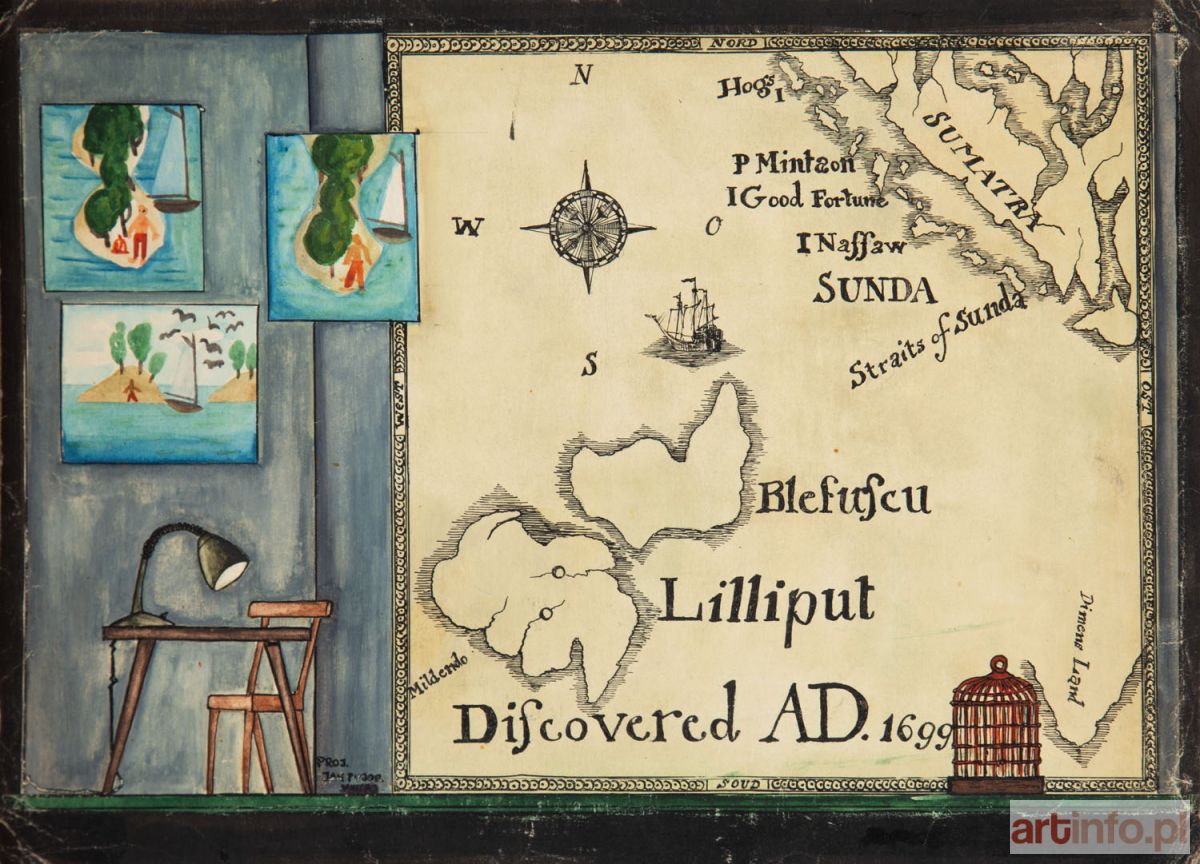 NORD
N
Hogs I
SUMATRA
P Mintaon
I Good Fortune
W
O
I Naſſaw
SUNDA
Straits of Sunda
S
WEST
OST
Blefuſcu
Lilliput
Mildendo
Dimens Land
Diſcovered AD. 1699
PROJ.
SOUD
artinfo.pl